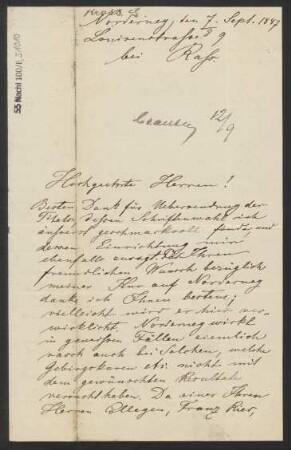 55 Nachl 100/B,
Norderney, den 7. Sept. 1897
Louisenstrasse 9
bei Rass
12/9
Hochgeehrte Herren!
Besten Dank für Uebersendung der
Titel, dessen Schriftwahl ich
äusserst geschmackvoll finde, und
dessen Einrichtung mir
ebenfalls zusagt. Ihren
freundlichen Wunsch bezüglich
meiner Kur auf Norderney
danke ich Ihnen bestens;
vielleicht wird er hier ver-
wirklicht. Norderney wirkt
in gewissen Fällen ziemlich
rasch auch bei Solchen, welche
Gebirgskuren etc. nicht mit
dem gewünschten Resultate
versucht haben. Da einer Ihrer
Herren Collegen, Franz